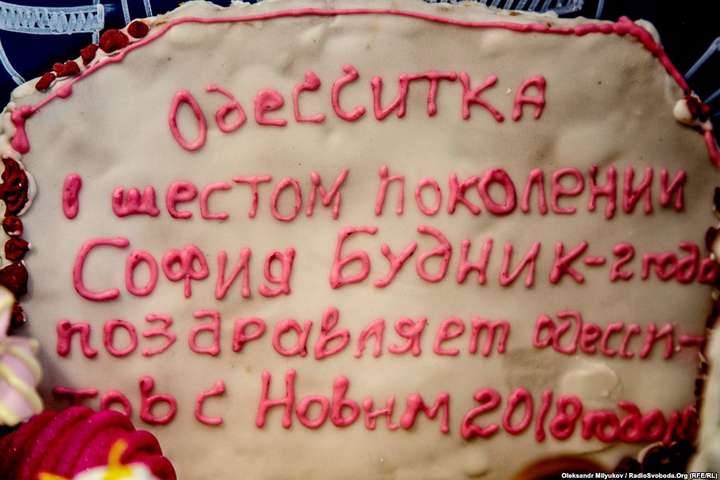 Одесситка
в шестом поколении
София Будник-2 года
поздравляет одесси-
тов с Новым 2018 годом
Oleksander Milyukov / RadioSvoboda.Org (RFE/RL)